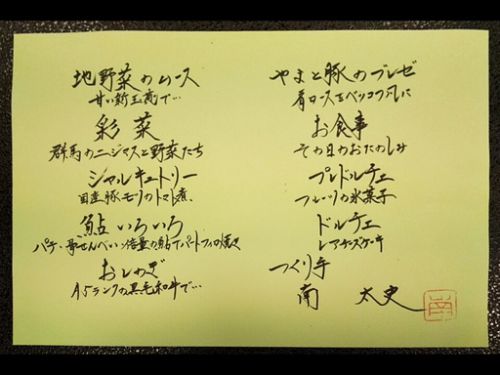 地野菜のムース
甘い新玉葱で…
彩菜
群馬のニジマスと野菜たち
シャルキュトリー
国産豚モツのトマト煮、
鮎いろいろ
パテ、骨せんべい
おしのぎ
A5ランクの黒毛和牛で…
やまと豚のブレゼ
肩ロースをベッコウ風に
お食事
その日のおたのしみ
プレドルチェ
フルーツの氷菓子
ドルチェ
レアチーズケーキ
つくり手
南 太史
南